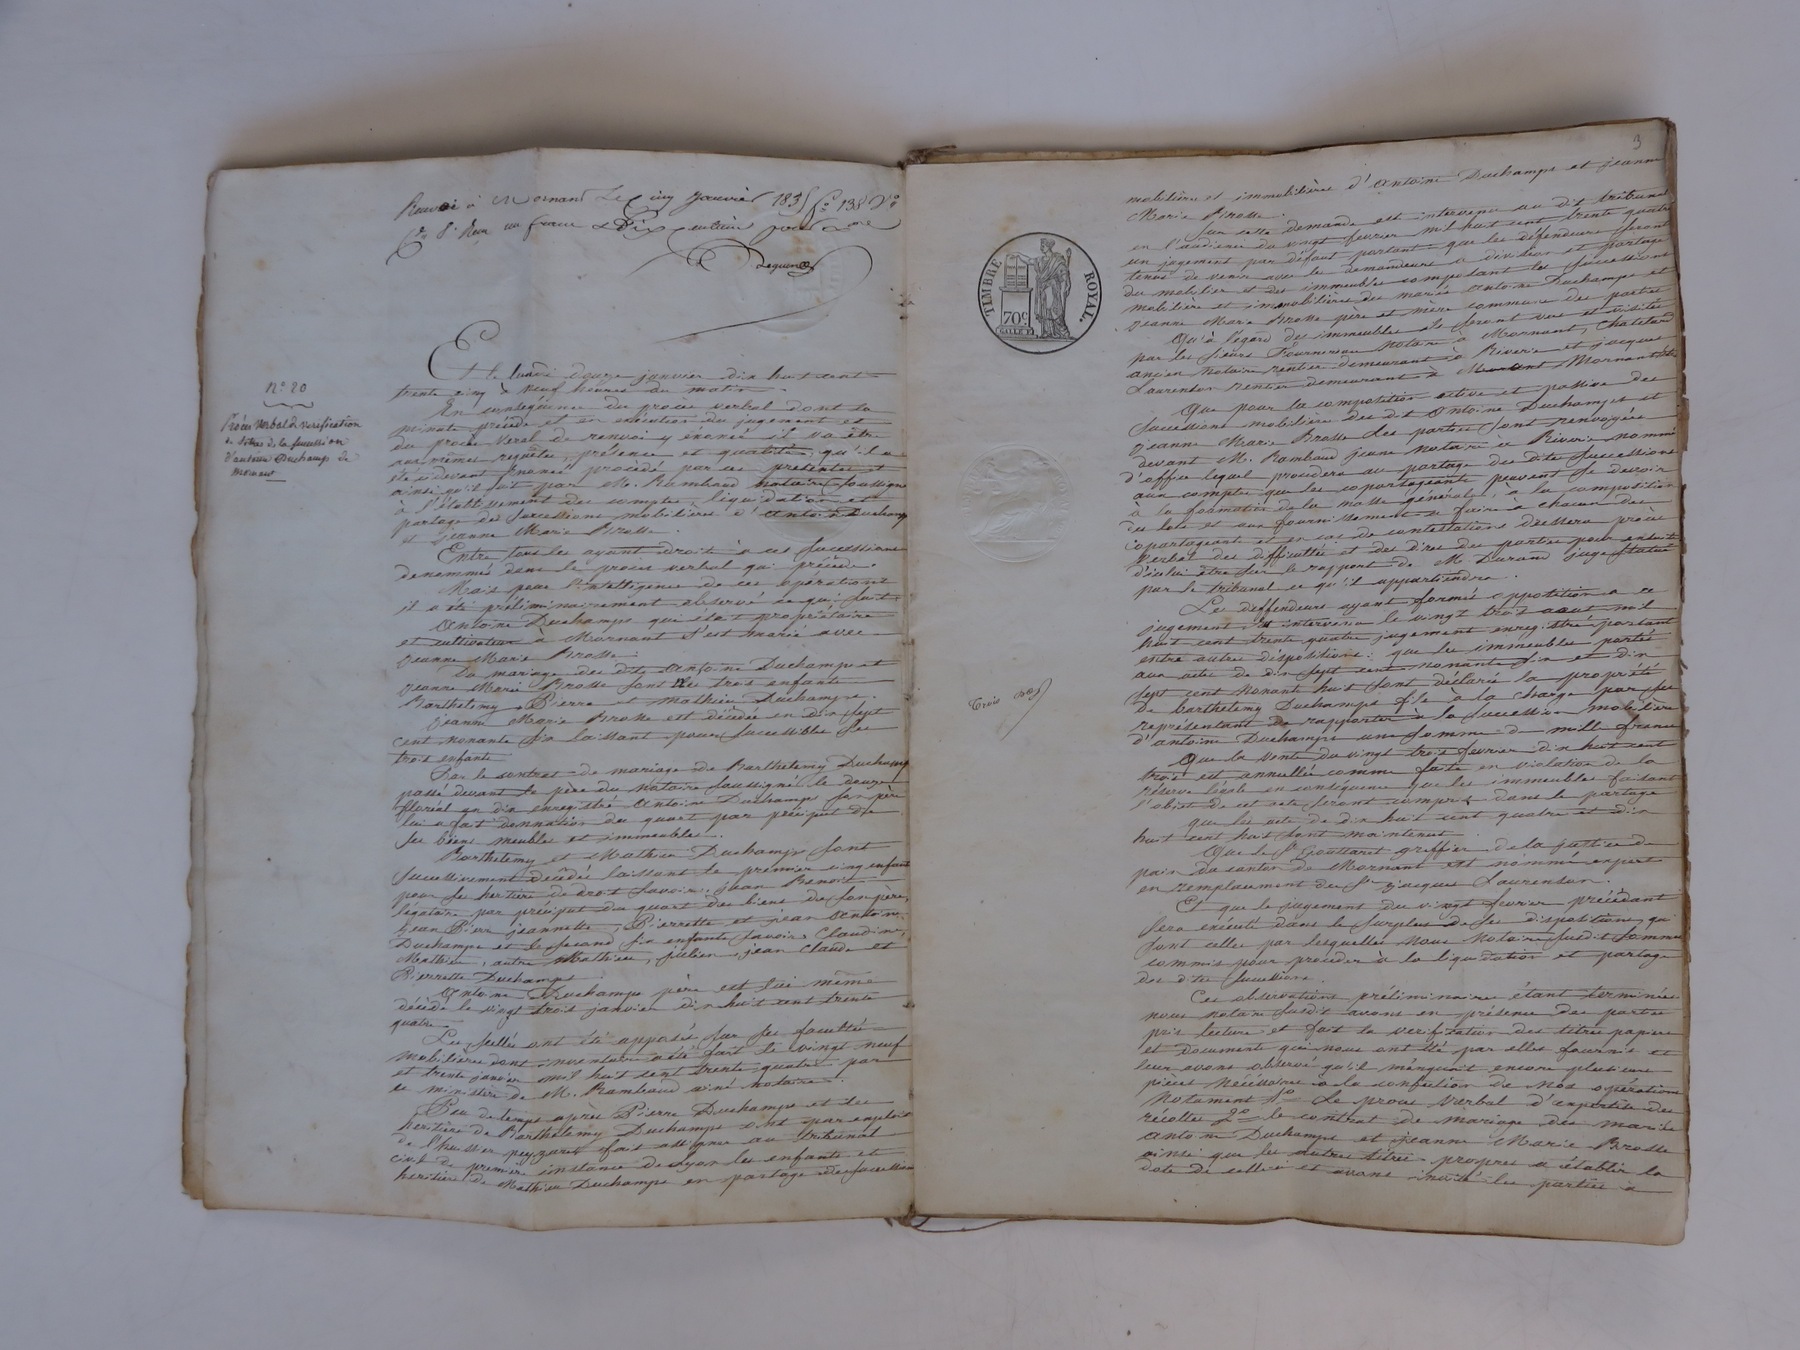 Renvoi à Mornant le cinq janvier 1835 fo 138 Vo
Reçu un franc dix centimes pour
Et le lundi douze janvier dix huit cent
trente cinq à neuf heures du matin.
En conséquence du procès verbal dont la
minute précède et en exécution du jugement et
du procès verbal de renvoi y énoncé il va être
aux mêmes requête, présence et qualités, qu'il a
été cidevant énoncé procédé par ces présentes et
ainsi qu'il suit par M. Rambaud notaire soussigné
à l'établissement des comptes, liquidation et
partage des successions mobilières d'antoine Duchamp
et Jeanne Marie Brosse.
Entre tous les ayant droit à ces successions
denommés dans le procès verbal qui précède.
Mais pour l'intelligence de ces opérations
il a été préliminairement observé ce qui suit.
Antoine Duchamps qui était propriétaire
et cultivateur à Mornant s'est marié avec
Jeanne Marie Brosse.
Du mariage des dits Antoine Duchamps et
Jeanne Marie Brosse sont nés trois enfants
Barthelemy, Pierre et Mathieu Duchamps.
Jeanne Marie Brosse est décédée en dix sept
cent nonante six laissant pour successibles ses
trois enfants
Par le contrat de mariage de Barthelemy Duchamp
passé devant le père du notaire soussigné le douze
floréal an dix enregistré Antoine Duchamps son père
lui a fait donnation du quart par préciput de
ses biens meubles et immeubles.
Barthelemy et Mathieu Duchamps sont
successivement décédés laissant le premier cinq enfants
pour ses héritiers de droit savoir, jean Benoit
légataire par préciput du quart des biens de son père,
jean Pierre jeannette, Pierrette et jean Antoine
Duchamps et le second six enfants savoir, Claudine,
Mathieu, autre Mathieu, julien, jean Claude et
Pierrette Duchamps.
Antoine Duchamps père est lui même
décédé le vingt trois janvier dix huit cent trente
quatre.
Les scellés ont été apposés sur ses facultés
mobilières dont inventaire a été fait le vingt neuf
et trente janvier mil huit cent trente quatre par
le ministère de M. Rambaud ainé notaire.
Peu de temps après Pierre Duchamps et les
héritiers de Barthelemy Duchamps ont par exploit
de l'huissier fait assigner au tribunal
civil de première instance de Lyon les enfants et
héritiers de Mathieu Duchamps en partage des successions
No 20
Procès verbal de verification
de titres de la succession
d'antoine Duchamps de
Mornant
3
TIMBRE ROYAL
70c
Trois
mobilières et immobilières d'antoine Duchamps et jeanne
Marie Brosse.
Sur cette demande est intervenu au dit tribunal
en l'audience du vingt fevrier mil huit cent trente quatre
un jugement par défaut portant que les défendeurs seront
tenus de venir avec les demandeurs à division et partage
du mobilier et des immeubles composant les successions
mobilières et immobilières des mariés Antoine Duchamps et
Jeanne Marie Brosse père et mère communs des parties
Qu'à l'égard des immeubles ils seront vus et visités
par les sieurs Fournereau notaire à Mornant, Chatelard
ancien notaire rentier demeurant à Riverie et jacques
Laurenson rentier demeurant à Mornant
Que pour la composition active et passive des
successions mobilières des dits Antoine Duchamps et
Jeanne Marie Brosse les parties sont renvoyées
devant M. Rambaud jeune notaire à Riverie nommé
d'office lequel procédera au partage des dites successions
aux comptes que les copartageants peuvent se devoir
à la formation de la masse générale, à la composition
des lots et aux fournissements à faire à chacun des
copartageants et en cas de contestations dressera procès
verbal des difficultés et des dires des parties pour ensuite
d'icelui être sur le rapport de M. Durand juge statué
par le tribunal ce qu'il appartiendra.
Les deffendeurs ayant formés opposition à ce
jugement, est intervenu le vingt trois aout mil
huit cent trente quatre jugement enregistré portant
entre autres dispositions: que les immeubles portés
aux actes de dix sept cent nonante six et dix
sept cent nonante huit sont déclarés la propriété
de Barthelemy Duchamps fils à la charge par ses
représentant de rapporter à la succession mobilière
d'antoine Duchamps une somme de mille francs
Que la vente du vingt trois fevrier dix huit cent
trois est annullée comme faite en violation de la
réserve légale en conséquence que les immeubles faisant
l'objet de cet acte seront compris dans le partage
que les actes de dix huit cent quatre et dix
huit cent huit sont maintenus
Que le Sr Gouttaret greffier de la justice de
paix du canton de Mornant est nommé expert
en remplacement du Sr jacques Laurenson.
Et que le jugement du vingt fevrier précédant
sera exécuté dans le surplus de ses dispositions, qui
sont celles par lesquelles nous notaire susdit sommes
commis pour procéder à la liquidation et partage
des dites successions
Ces observations préliminaires étant terminées
nous notaire susdit avons en présence des parties
pris lecture et fait la verification des titres papiers
et documents qui nous ont été par elles fournis et
leur avons observé qu'il manquait encore plusieurs
pièces nécessaires à la confection de nos opérations
notament 1o Le procès verbal d'expertise des
récoltes 2o le contrat de mariage des mariés
antoine Duchamps et Jeanne Marie Brosse
ainsi que les autres titres propres à établir la
dote de celle ci et avons invité les parties à